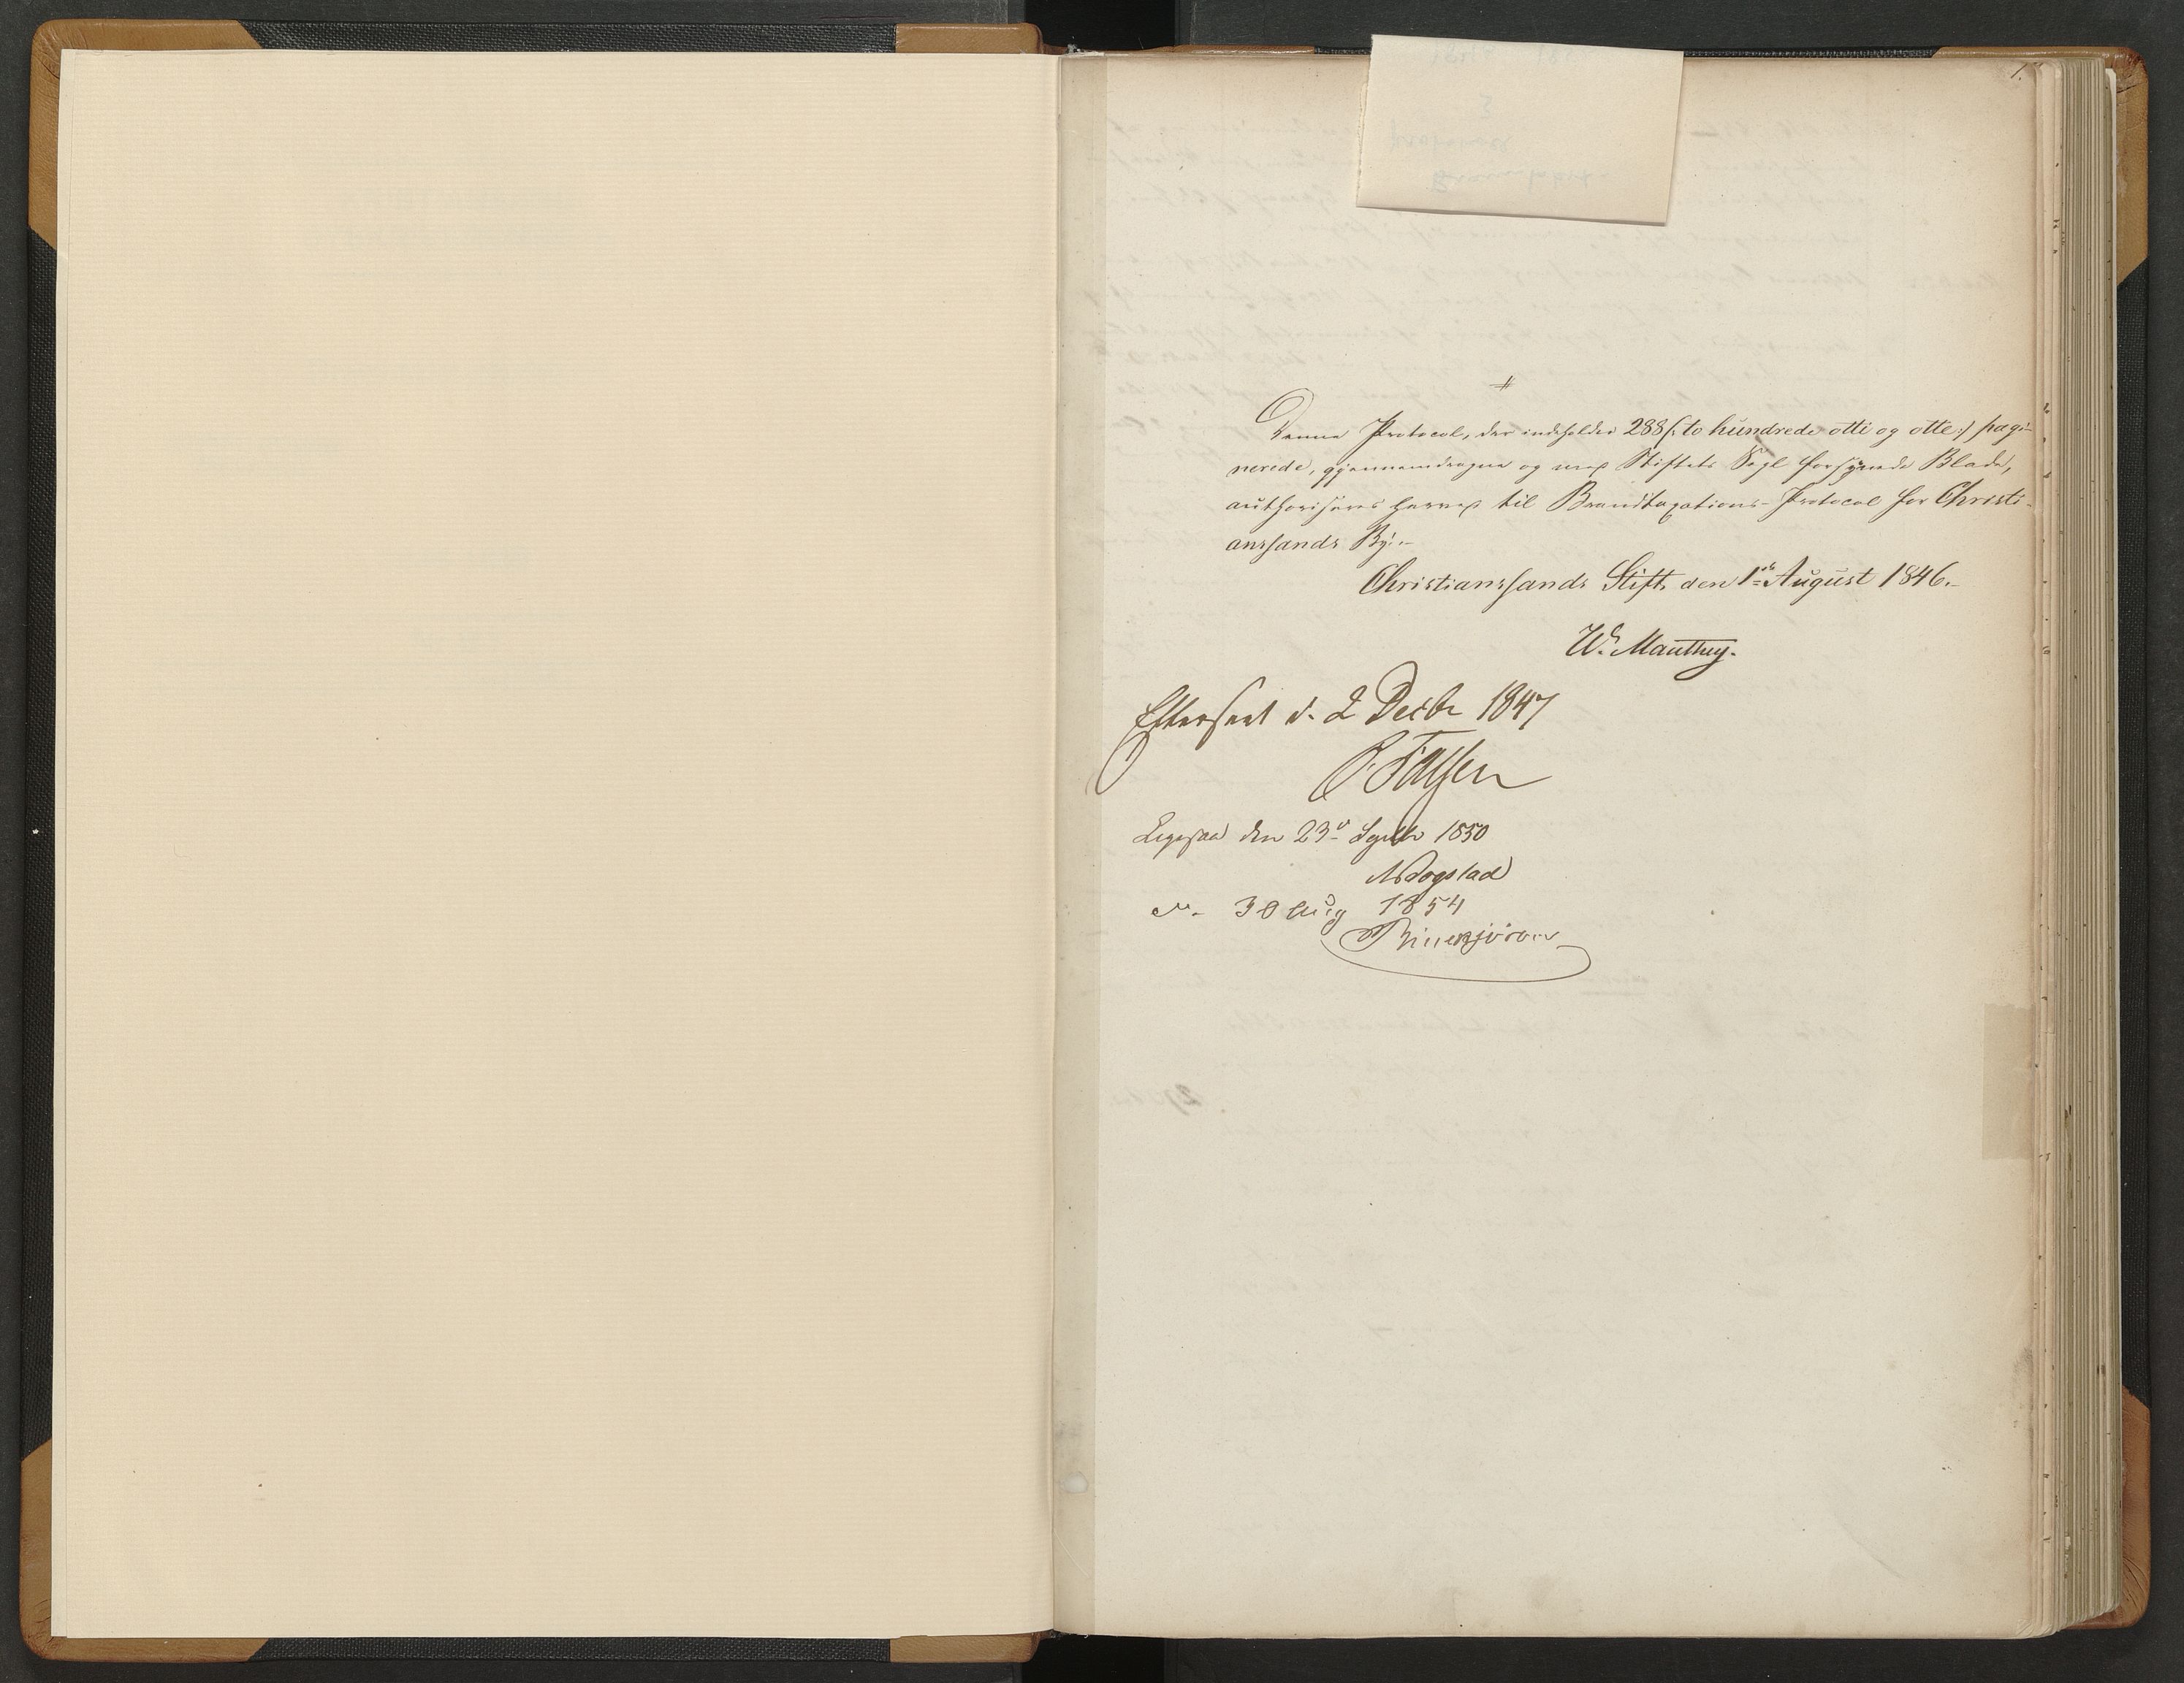 1.
Denne Protocol, der indeholder 288 /: to hundrede otti og otte :/ pagi-
nerede, gjennemdragne og med Stiftets Segl forsynede Blade,
authoriseres herved til Brandtaxations-Protocol for Christi-
anssands By.-
Christianssands Stift, den 1ste August 1846.-
W. Manthey.
Efterseet d. 2 Decbr 1847
Ligesaa den 23de Septbr 1850
30 Aug 1854